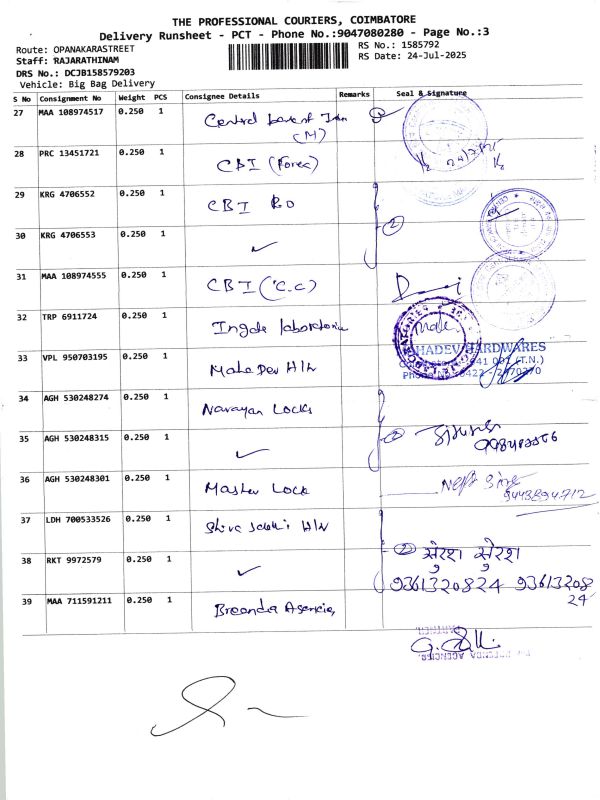 THE PROFESSIONAL COURIERS, COIMBATORE
Delivery Runsheet - PCT - Phone No.:9047080280 - Page No.:3
Route: OPANAKARASTREET
RS No.: 1585792
Staff: RAJARATHINAM
RS Date: 24-Jul-2025
DRS No.: DCJB158579203
Vehicle: Big Bag Delivery
S No Consignment No Weight PCS Consignee Details Remarks Seal & Signature
27 MAA 108974517 0.250 1 Central
(M)
28 PRC 13451721 0.250 1 CBI (Forex)
29 KRG 4706552 0.250 1 CBI RO
2
30 KRG 4706553 0.250 1 ✓
31 MAA 108974555 0.250 1 CBI (C.C)
32 TRP 6911724 0.250 1 Ingde
33 VPL 950703195 0.250 1 Maha Dev H/W
HARDWARES
34 AGH 530248274 0.250 1 Narayan Locks
35 AGH 530248315 0.250 1 ✓
2
36 AGH 530248301 0.250 1 Master Lock
9443894712
37 LDH 700533526 0.250 1 Shiva H/W
2 सुरेश सुरेश
38 RKT 9972579 0.250 1 ✓ 9361320824 93613208
24
39 MAA 711591211 0.250 1